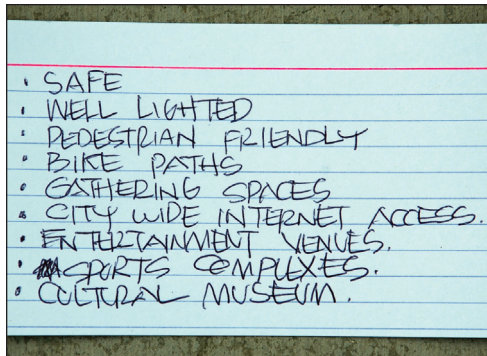 • SAFE
• WELL LIGHTED
• PEDESTRIAN FRIENDLY
• BIKE PATHS
• GATHERING SPACES
• CITY WIDE INTERNET ACCESS.
• ENTERTAINMENT VENUES.
• SPORTS COMPLEXES.
• CULTURAL MUSEUM.